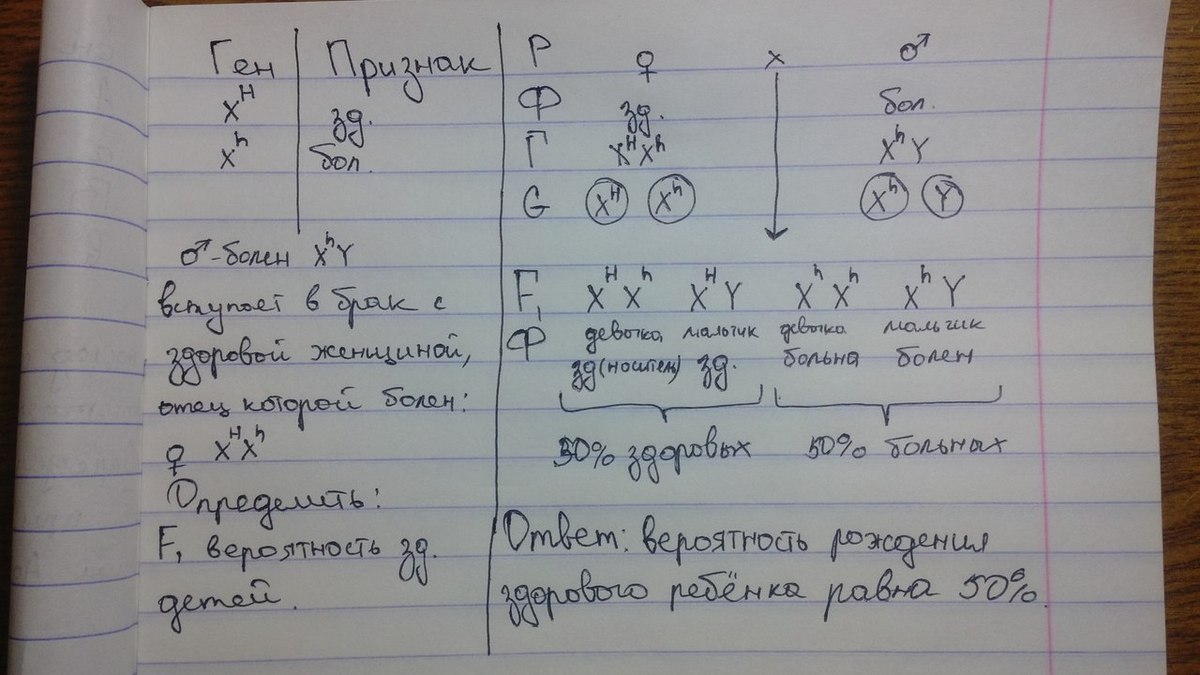 Ген Признак
X^H зд.
X^h бол.
♂-болен X^hY
вступает в брак с
здоровой женщиной,
отец которой болен:
♀ X^HX^h
Определить:
F₁ вероятность зд.
детей.
P ♀ x ♂
Ф зд. бол.
Г X^HX^h X^hY
G X^H X^h X^h Y
F₁ X^HX^h X^HY X^hX^h X^hY
Ф девочка мальчик девочка мальчик
зд(носител) зд. больна болен
50% здоровых 50% больных
Ответ: вероятность рождения
здорового ребёнка равна 50%.